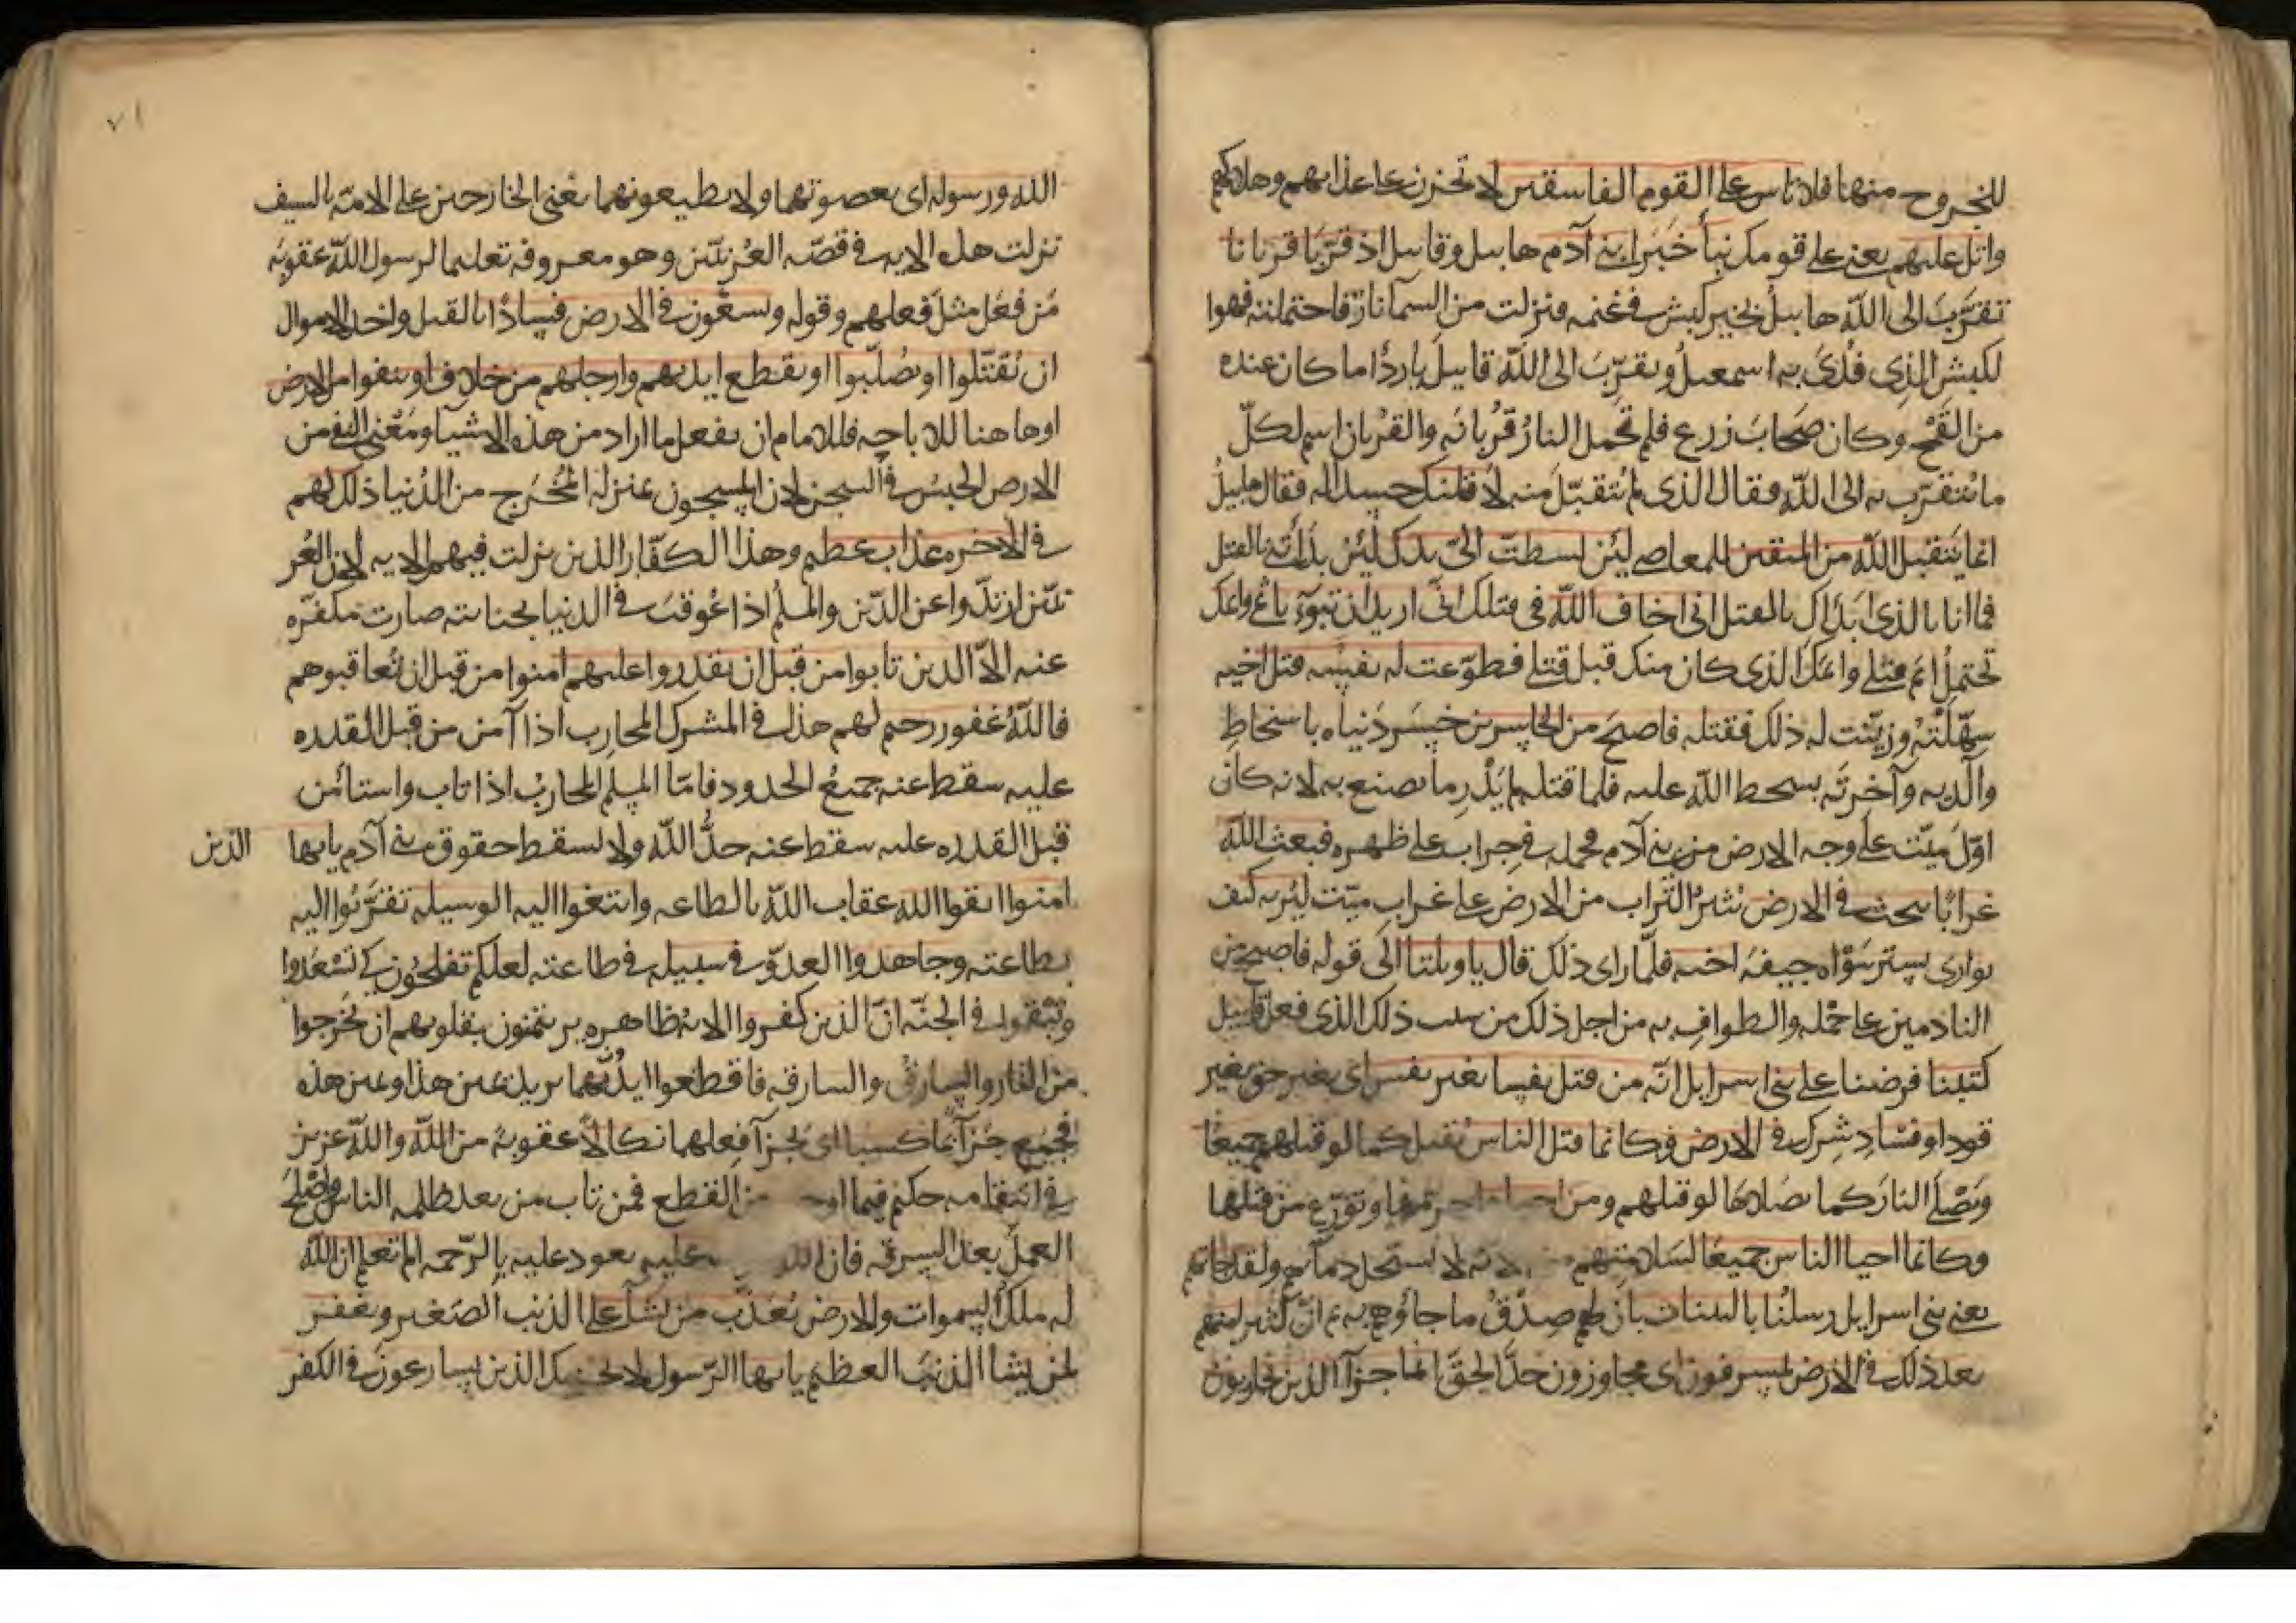 للخروج منها فلا تاس على القوم الفاسقين لا تحزن على عذابهم وهلاكهم
واتل عليهم يعني على قومك نبأ خبر ابني آدم هابيل وقابيل اذ قربا قربانا
تقرب الى الله هابيل بخير كبش في غنمه فنزلت من السماء نار فاحتملته فهوا
لكبش الذي فدى به اسمعيل وتقرب الى الله قابيل باردا ما كان عنده
من القمح وكان صحاب زرع فلم تحمل النار قربانه والقربان اسم لكل
ما يتقرب به الى الله فقال الذي لم يتقبل منه لاقتلنك حسدا له فقال هابيل
انما يتقبل الله من المتقين للمعاصي لئن بسطت الي يدك لئن بدأتني بالقتل
فما انا بالذي ابدأك بالقتل اني اخاف الله في قتلك اني اريد ان تبوء باثمي واثمك
تحتمل اثم قتلي واثمك الذي كان منك قبل قتلي فطوعت له نفسه قتل اخيه
سهلته وزينت له ذلك فقتله فاصبح من الخاسرين خسر دنياه باسخاط
والديه وآخرته بسخط الله عليه فلما قتله لم يدر ما يصنع به لانه كان
اول ميت على وجه الارض من بني آدم فحمله في جراب على ظهره فبعث الله
غرابا يبحث في الارض يثير التراب من الارض على غراب ميت ليريه كيف
يوارى يستر سوأة جيفة اخيه فلما راى ذلك قال يا ويلتا الى قوله فاصبح من
النادمين على حمله والطواف به من اجل ذلك من سبب ذلك الذي فعل قابيل
كتبنا فرضنا على بني اسرايل انه من قتل نفسا بغير نفس اى بغير حق بغير
قود او فساد شرك في الارض فكانما قتل الناس يقتل كما لو قتلهم جميعا
ويصلى النار كما يصلاها لو قتلهم ومن احياها حرمها وتورع من قتلها
وكانما احيا الناس جميعا لسلامتهم منه لانه لا يستحل دماءهم ولقد جاءتهم
يعني بني اسرايل رسلنا بالبينات بان لهم صدق ما جاؤهم به ثم ان كثيرا منهم
بعد ذلك في الارض لمسرفون اى مجاوزون حد الحق انما جزآ الذين يحاربون
٧١
الله ورسوله اى يعصونهما ولا يطيعونهما يعني الخارجين على الامة بالسيف
نزلت هذه الايه في قصة العرنيين وهو معروفه تعليما لرسول الله عقوبة
من فعل مثل فعلهم وقوله ويسعون في الارض فسادا بالقتل واخذ الاموال
ان يقتلوا او يصلبوا او تقطع ايديهم وارجلهم من خلاف او ينفوا من الارض
او هاهنا للاباحه فللامام ان يفعل ما اراد من هذه الاشيا ومعنى النفي من
الارض الحبس في السجن لان المسجون بمنزلة المخرج من الدنيا ذلك لهم
في الاخره عذاب عظيم وهذا الكفار الذين نزلت فيهم الايه لان العر
نيين ارتدوا عن الدين والمسلم اذا عوقب في الدنيا بجنايته صارت مكفره
عنه الا الذين تابوا من قبل ان تقدروا عليهم امنوا من قبل ان تعاقبوهم
فالله غفور رحيم لهم هذا في المشرك المحارب اذا آمن من قبل القدره
عليه سقط عنه جميع الحدود فاما المسلم المحارب اذا تاب واستأمن
قبل القدره عليه سقط عنه حد الله ولا يسقط حقوق بني آدم يايها الذين
امنوا اتقوا الله عقاب الله بالطاعه وابتغوا اليه الوسيله تقربوا اليه
بطاعته وجاهدوا العدو في سبيله في طاعته لعلكم تفلحون كي تسعدوا
وتبقوا في الجنة ان الذين كفروا الاية ظاهره يريدون يتمنون بقلوبهم ان يخرجوا
من النار والسارق والسارقه فاقطعوا ايديهما يريد يمين هذا ويمين هذه
فجمع جزآ بما كسبا اى بجزآ فعلهما نكالا عقوبة من الله والله عزيز
في انتقامه حكيم فيما اوجب من القطع فمن تاب من بعد ظلمه الناس واصلح
العمل بعد السرقه فان الله عليه يعود عليه بالرحمه الم تعلم ان الله
له ملك السموات والارض يعذب من يشآ على الذنب الصغير ويغفر
لمن يشا الذنب العظيم يايها الرسول لا يحزنك الذين يسارعون في الكفر